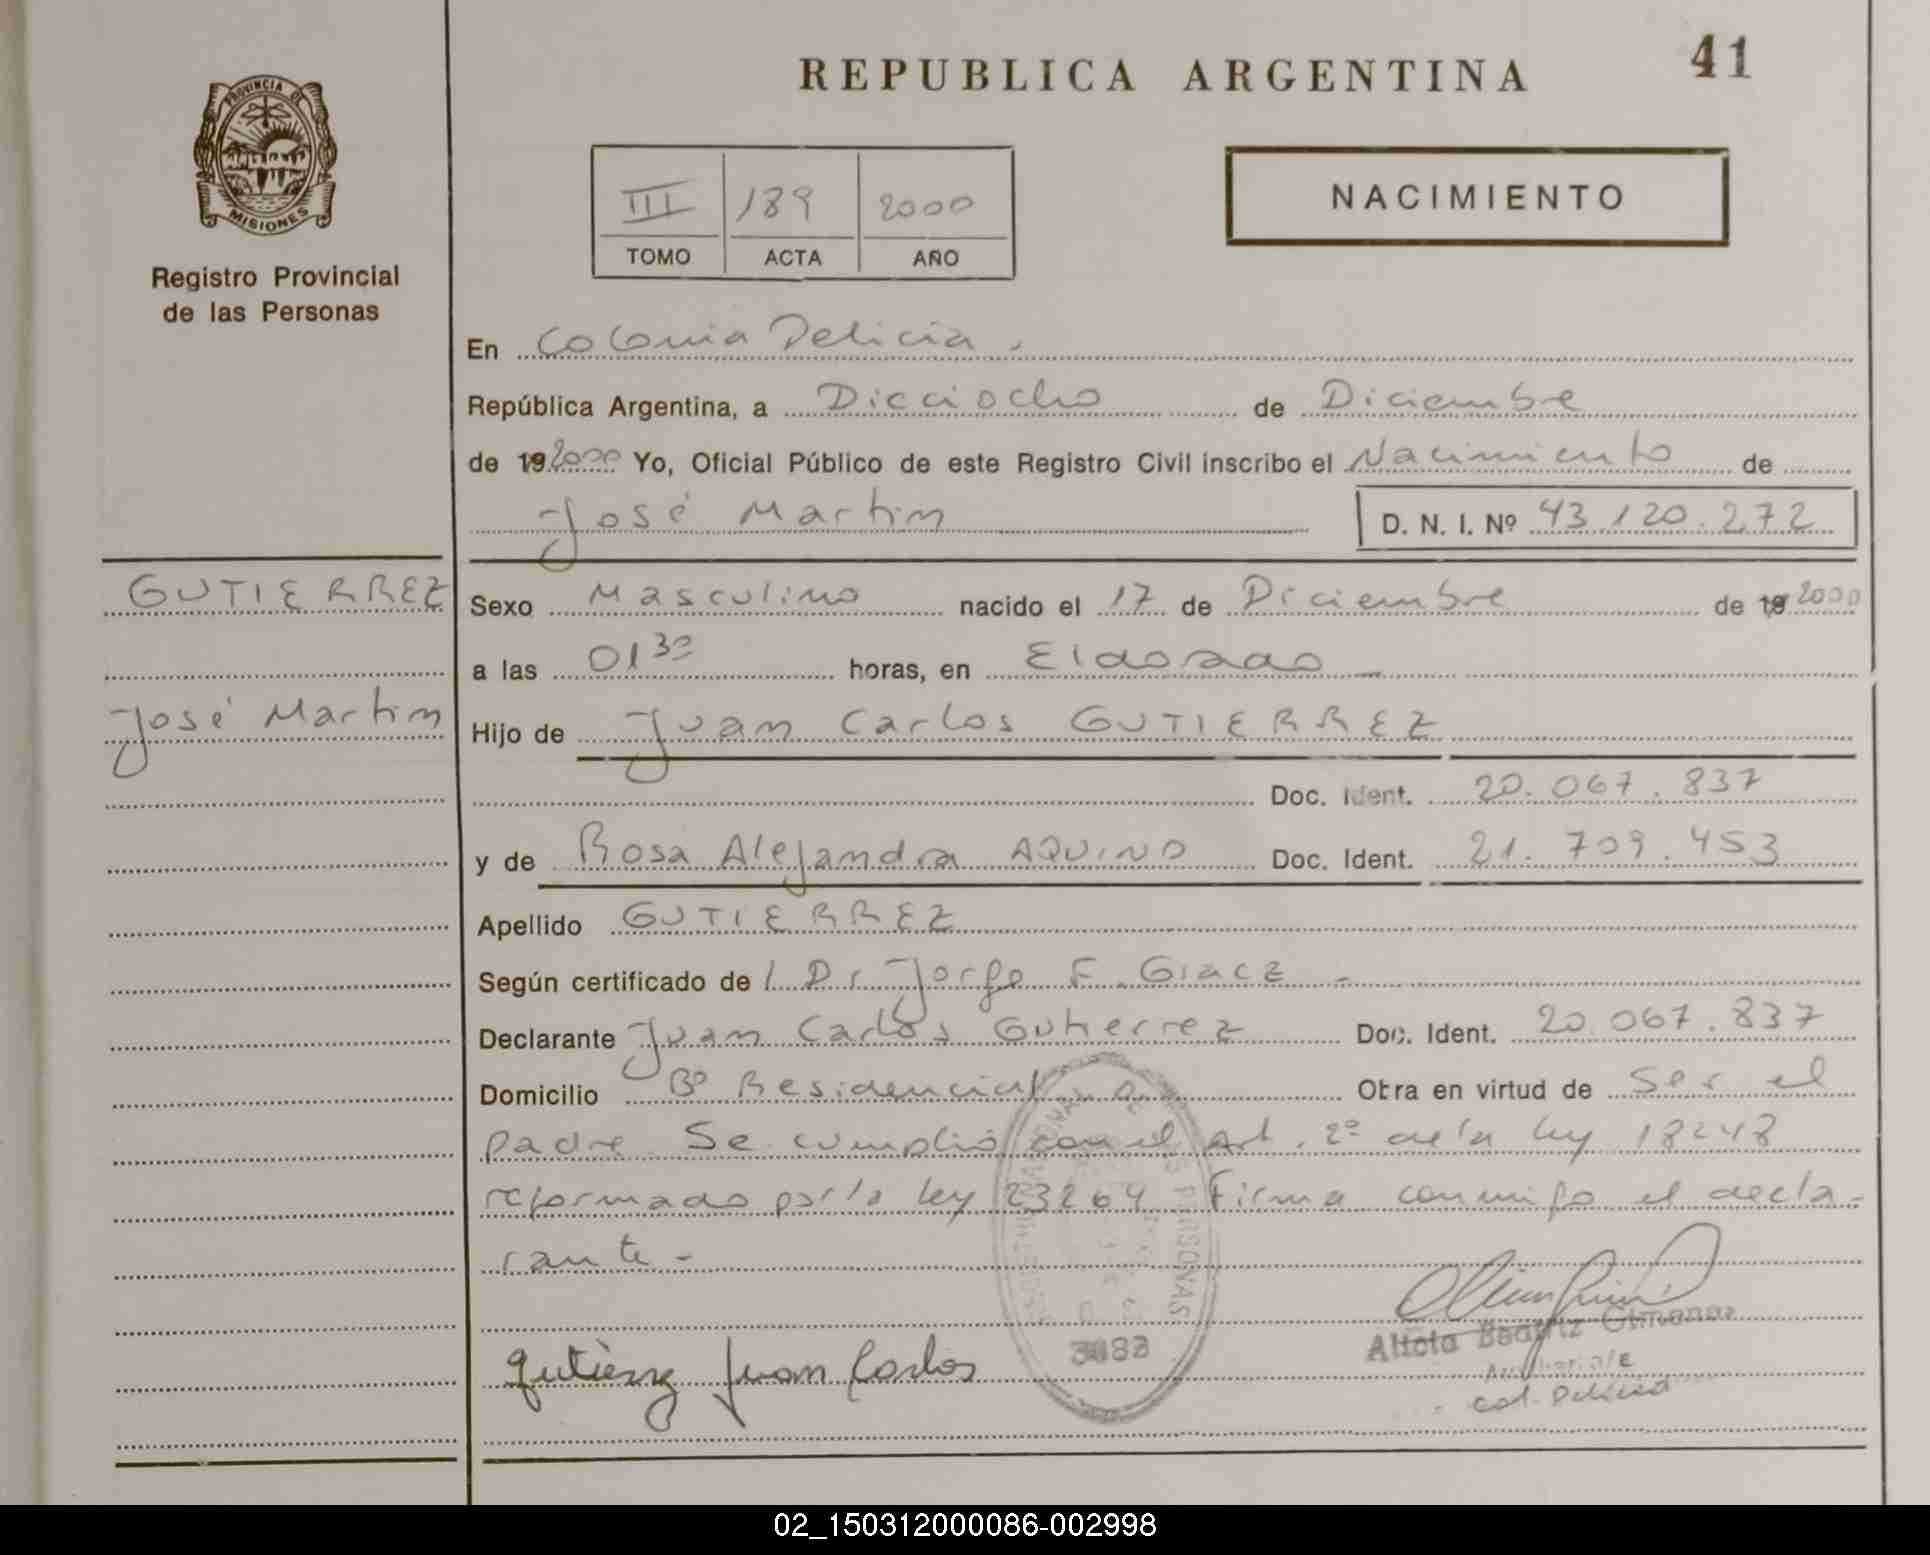 REPUBLICA ARGENTINA
41
PROVINCIA DE
MISIONES
Registro Provincial
de las Personas
III 189 2000
TOMO ACTA AÑO
NACIMIENTO
En Colonia Delicia.
República Argentina, a Dieciocho de Diciembre
de 19 2000 Yo, Oficial Público de este Registro Civil inscribo el Nacimiento de
José Martin D. N. I. Nº 43.120.272
GUTIERREZ
José Martin
Sexo Masculino nacido el 17 de Diciembre de 19 2000
a las 01 30 horas, en Eldorado
Hijo de Juan Carlos GUTIERREZ
Doc. Ident. 20.067.837
y de Rosa Alejandra AQUINO Doc. Ident. 21.709.453
Apellido GUTIERREZ
Según certificado de / Dr Jorge F. Giace -
Declarante Juan Carlos Gutierrez Doc. Ident. 20.067.837
Domicilio Bº Residencial Obra en virtud de ser el
padre. Se cumplió con el Art. 2º de la ley 18248
reformado por la ley 23264 Firma conmigo el decla-
rante -
PERSONAS
3083
Gutierrez Juan Carlos
Alicia Beatriz Gimenez
Col. Delicia
02_150312000086-002998